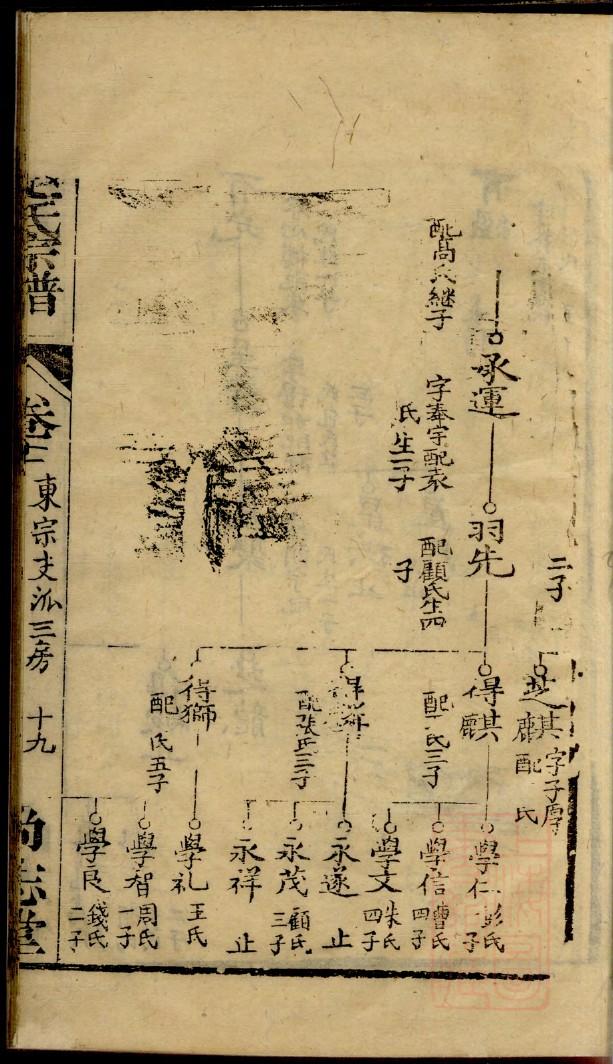 二子
芝麒
字子厚
配 氏
承運
配高氏継子
羽先
字奉宇配袁
氏生二子
得麒
配顧氏生四
子
配 氏三子
配張氏三子
得獅
配 氏五子
學仁
彭氏
子
學信
曹氏
四子
學文
朱氏
四子
永遂 止
永茂
顧氏
三子
永祥 止
學礼
王氏
學智
周氏
一子
學良
錢氏
二子
氏宗普
卷十
東宗支派三房 十九
尚志堂